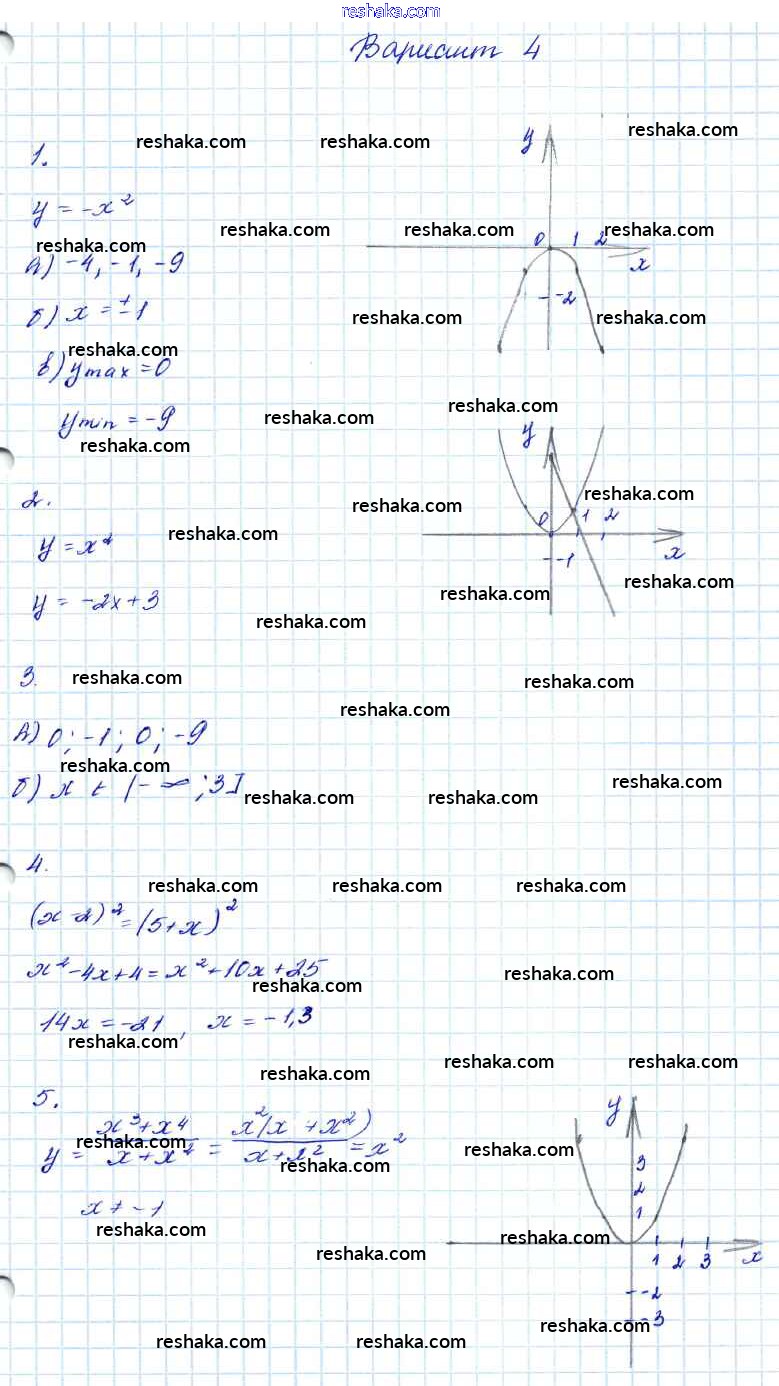 reshaka.com
Вариант 4
reshaka.com reshaka.com reshaka.com
1.
y
y = -x²
reshaka.com reshaka.com reshaka.com
0 1 2
reshaka.com
x
а) -4, -1, -9
-2
б) x = ±1
reshaka.com reshaka.com
reshaka.com
в) y max = 0
reshaka.com reshaka.com
y min = -9
y
reshaka.com
2.
reshaka.com reshaka.com
0 1 2
y = x²
reshaka.com
-1
x
reshaka.com reshaka.com
y = -2x+3
reshaka.com
3.
reshaka.com reshaka.com
reshaka.com
А) 0; -1; 0; -9
reshaka.com
б) x ϵ (-∞; 3]
reshaka.com reshaka.com reshaka.com
4.
reshaka.com reshaka.com reshaka.com
(x-2)² = (5+x)²
x²-4x+4 = x²+10x+25
reshaka.com reshaka.com
14x = -21, x = -1,3
reshaka.com reshaka.com reshaka.com
reshaka.com
5.
y
y = x³+x⁴ / x+x² = x²(x+x²) / x+x² = x²
reshaka.com reshaka.com reshaka.com
3
2
1
x ≠ -1
reshaka.com reshaka.com
reshaka.com
1 2 3 x
-2
-3
reshaka.com
reshaka.com reshaka.com